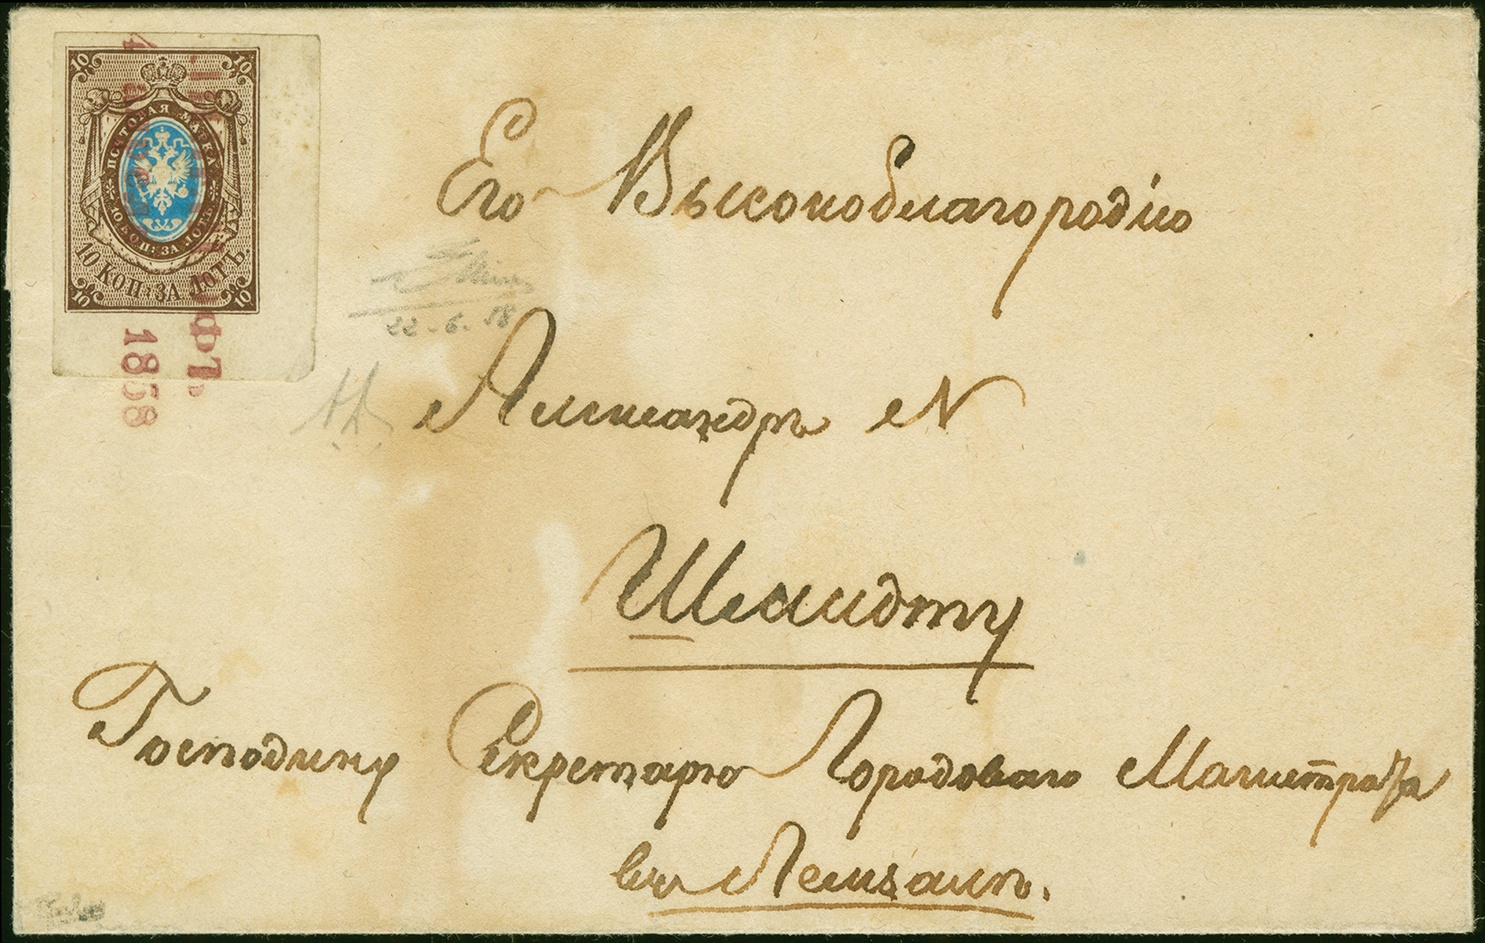 10 10
ПОЧТОВАЯ МАРКА
10 КОП: ЗА ЛОТЪ
10 КОП: ЗА ЛОТЪ.
10 10
1858
22-6.58
Его Высокоблагородію
Александръ N
Шмидту
Господину Секретарю Городоваго Магистрата
въ Лемзалъ.